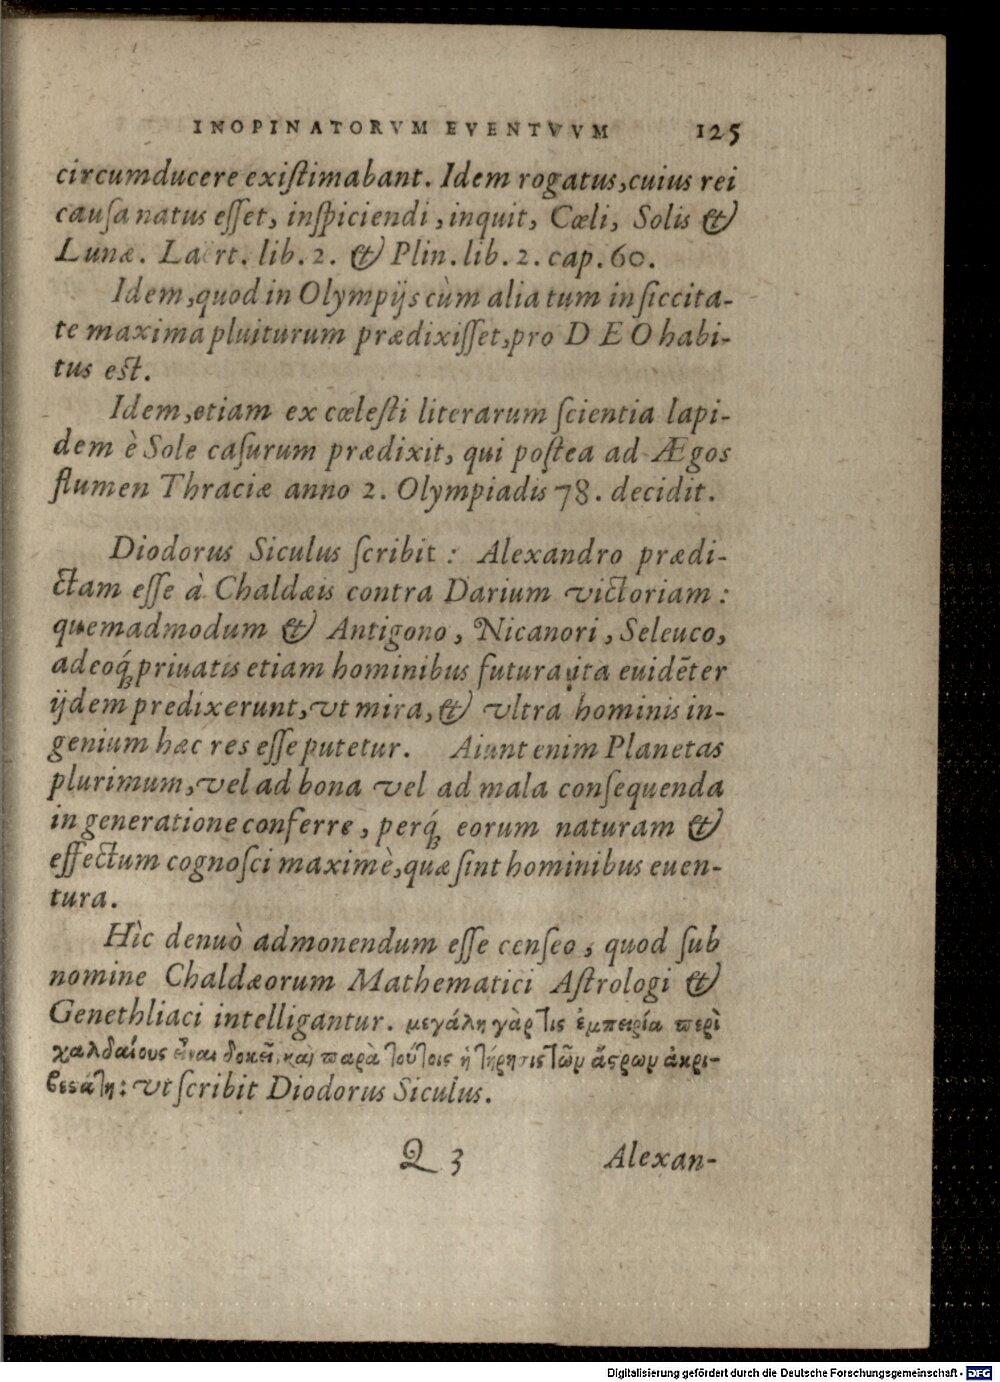 INOPINATORVM EVENTVVM 125
circumducere existimabant. Idem rogatus, cuius rei
causa natus esset, inspiciendi, inquit, Cœli, Solis &
Lunæ. Laert. lib. 2. & Plin. lib. 2. cap. 60.
Idem, quod in Olympijs cùm alia tum in siccita-
te maxima pluiturum prædixisset, pro DEO habi-
tus est.
Idem, etiam ex cœlesti literarum scientia lapi-
dem è Sole casurum prædixit, qui postea ad Ægos
flumen Thraciæ anno 2. Olympiadis 78. decidit.
Diodorus Siculus scribit: Alexandro prædi-
ctam esse à Chaldæis contra Darium victoriam:
quemadmodum & Antigono, Nicanori, Seleuco,
adeoq́ꝫ priuatis etiam hominibus futura ita euidẽter
ijdem predixerunt, vt mira, & vltra hominis in-
genium hæc res esse putetur. Aiunt enim Planetas
plurimum, vel ad bona vel ad mala consequenda
in generatione conferre, perq́ꝫ eorum naturam &
effectum cognosci maximè, quæ sint hominibus euen-
tura.
Hìc denuò admonendum esse censeo, quod sub
nomine Chaldæorum Mathematici Astrologi &
Genethliaci intelligantur. μεγάλη γὰρ τις ἐμπειρία περὶ
χαλδαίους εἶναι δοκεῖ, καὶ παρὰ τούτοις ἡ τήρησις τῶν ἄστρων ἀκρι-
βεστάτη: vt scribit Diodorus Siculus.
Q 3 Alexan-
Digitalisierung gefördert durch die Deutsche Forschungsgemeinschaft - DFG